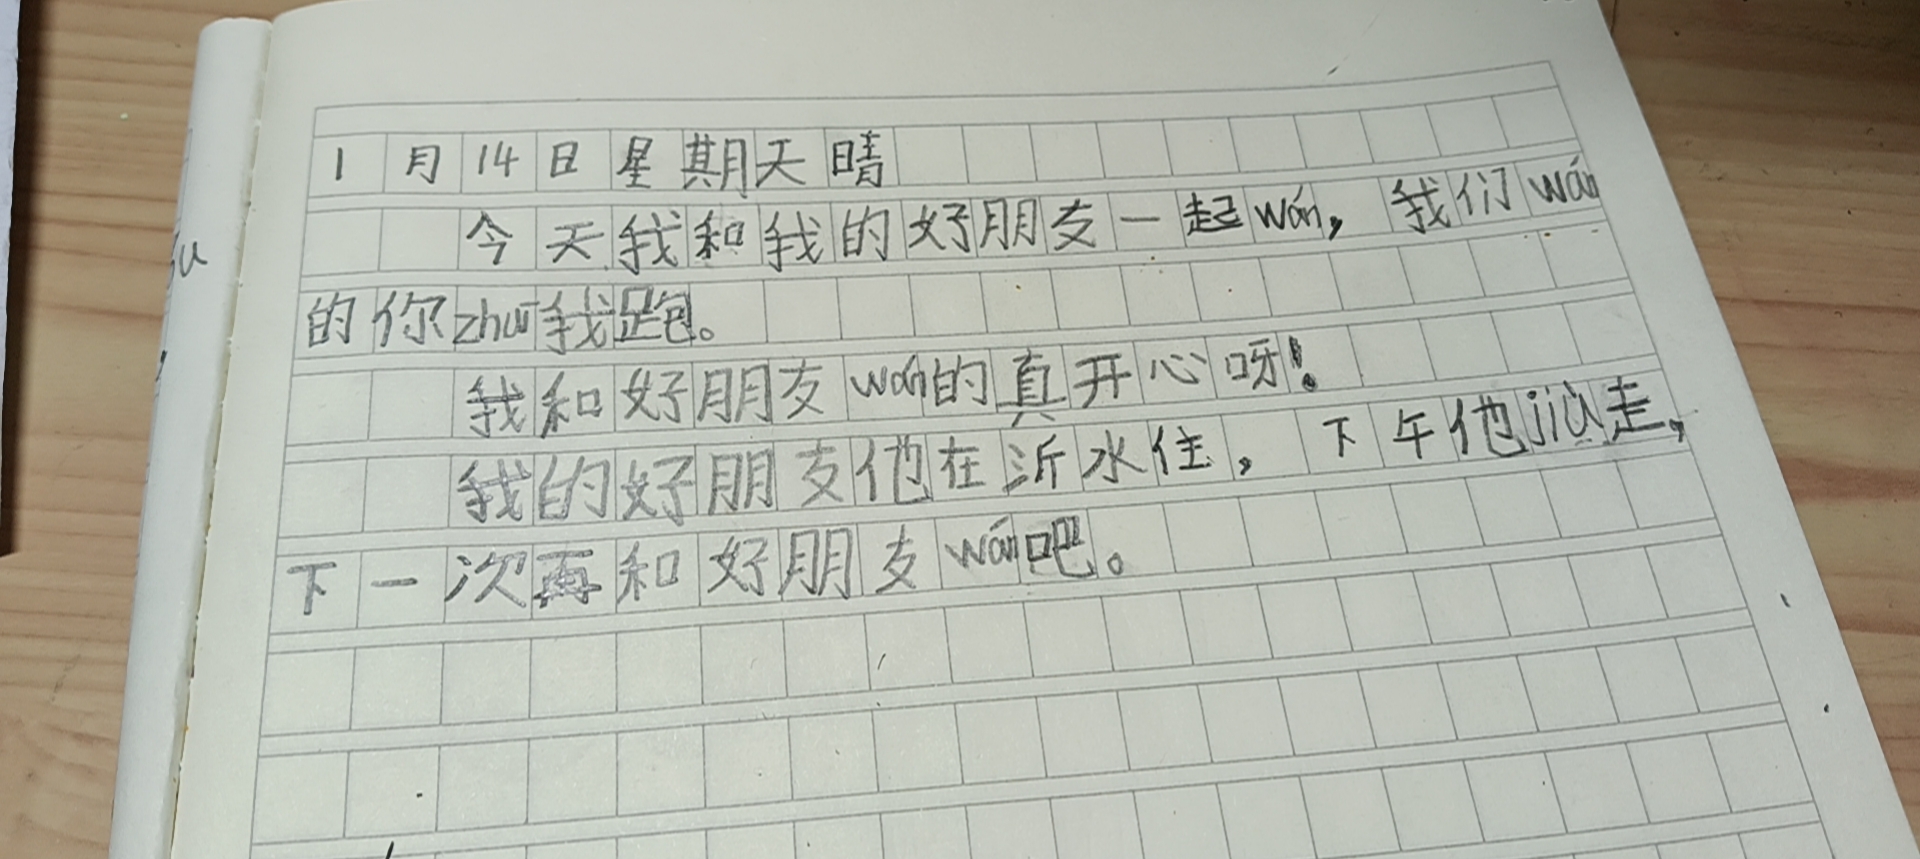 1月14日星期天晴
今天我和我的好朋友一起wán，我们wán
的你zhuī我跑。
我和好朋友wán的真开心呀！
我的好朋友他在沂水住，下午他jiù走，
下一次再和好朋友wán吧。